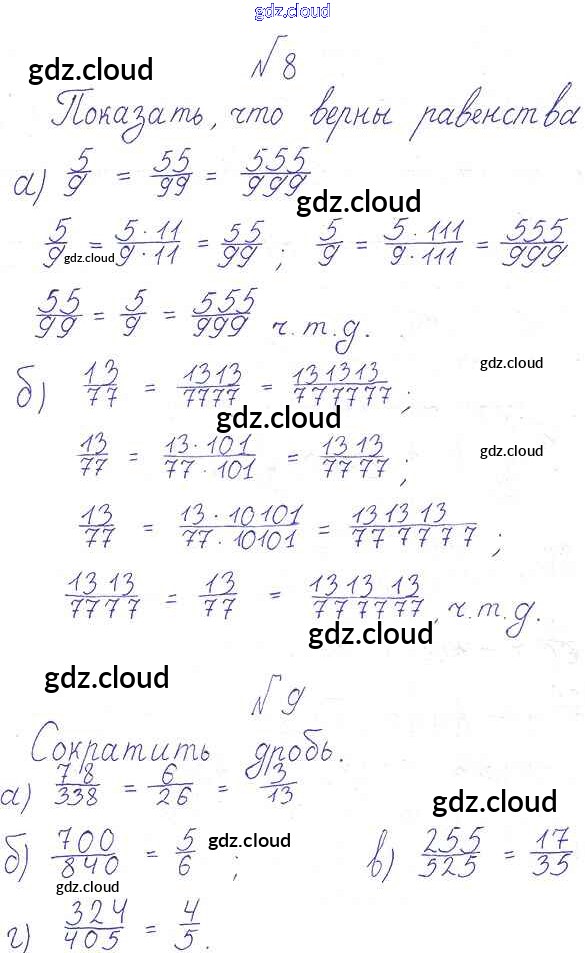 gdz.cloud
№ 8
gdz.cloud
Показать, что верны равенства
а) 5/9 = 55/99 = 555/999
gdz.cloud
5/9 = 5·11/9·11 = 55/99; 5/9 = 5·111/9·111 = 555/999
gdz.cloud
55/99 = 5/9 = 555/999 ч.т.д.
gdz.cloud
б) 13/77 = 1313/7777 = 131313/777777;
gdz.cloud
13/77 = 13·101/77·101 = 1313/7777;
gdz.cloud
13/77 = 13·10101/77·10101 = 131313/777777;
1313/7777 = 13/77 = 131313/777777, ч.т.д.
gdz.cloud
gdz.cloud
№ 9
Сократить дробь.
а) 78/338 = 6/26 = 3/13
gdz.cloud
б) 700/840 = 5/6; в) 255/525 = 17/35
gdz.cloud
gdz.cloud
г) 324/405 = 4/5.